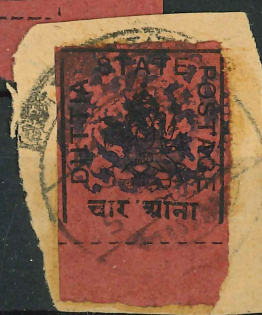 DUTTIA STATE POSTAGE
चार आना